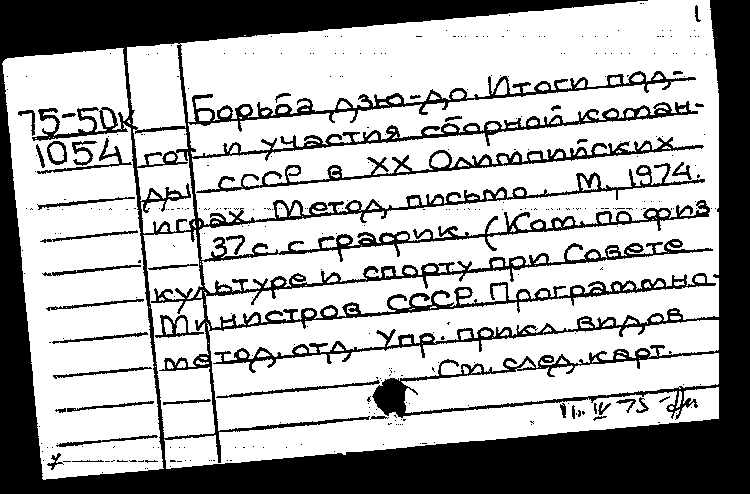 1
75-50к
1054
Борьба дзю-до. Итоги под-
гот. и участия сборной коман-
ды СССР в XX Олимпийских
играх. Метод. письмо. М., 1974.
37 с. с график. (Ком. по физ.
культуре и спорту при Совете
Министров СССР. Программно-
метод. отд. Упр. прикл. видов
См. след. карт.
IV 75